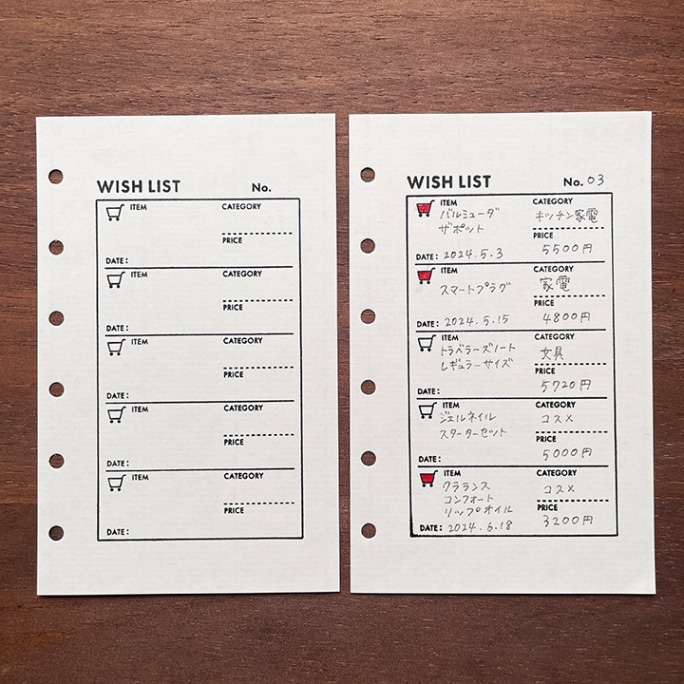 WISH LIST No.
ITEM CATEGORY
PRICE
DATE:
ITEM CATEGORY
PRICE
DATE:
ITEM CATEGORY
PRICE
DATE:
ITEM CATEGORY
PRICE
DATE:
ITEM CATEGORY
PRICE
DATE:
WISH LIST No. 03
ITEM CATEGORY
バルミューダ キッチン家電
ザポット PRICE
DATE: 2024.5.3 5500円
ITEM CATEGORY
スマートプラグ 家電
PRICE
DATE: 2024.5.15 4800円
ITEM CATEGORY
トラベラーズノート 文具
レギュラーサイズ PRICE
DATE: 5720円
ITEM CATEGORY
ジェルネイル コスメ
スターターセット PRICE
DATE: 5000円
ITEM CATEGORY
クラランス コスメ
コンフォート
リップオイル PRICE
DATE: 2024.6.18 3200円